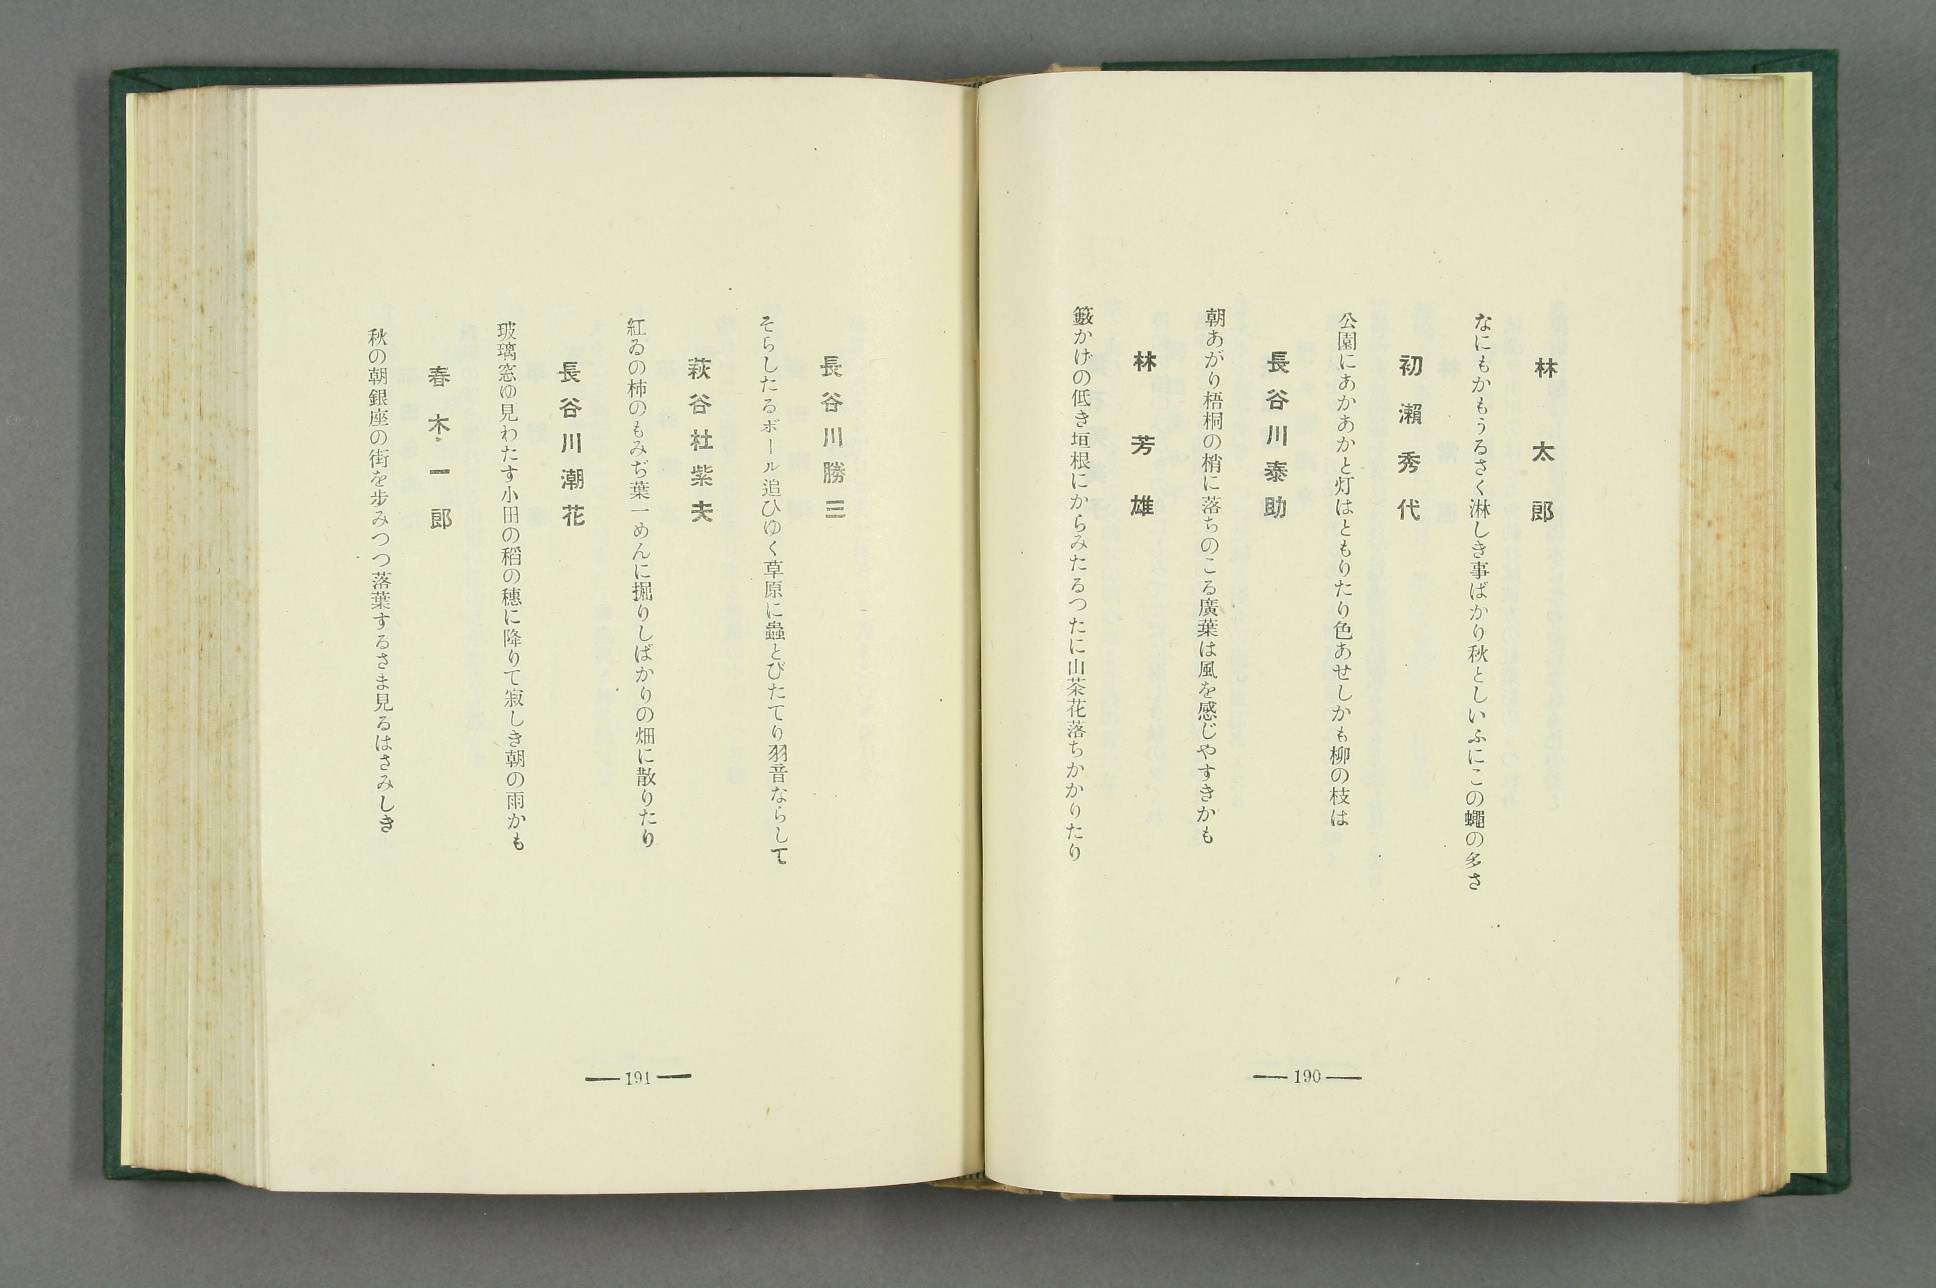 林太郎
なにもかもうるさく淋しき事ばかり秋としいふにこの蠅の多さ
初瀨秀代
公園にあかあかと灯はともりたり色あせしかも柳の枝は
長谷川泰助
朝あがり梧桐の梢に落ちのこる廣葉は風を感じやすきかも
林芳雄
籔かげの低き垣根にからみたるつたに山茶花落ちかかりたり
— 190 —
長谷川勝三
そらしたるボール追ひゆく草原に蟲とびたてり羽音ならして
萩谷杜紫夫
紅ゐの柿のもみぢ葉一めんに掘りしばかりの畑に散りたり
長谷川潮花
玻璃窓ゆ見わたす小田の稻の穗に降りて寂しき朝の雨かも
春木一郎
秋の朝銀座の街を歩みつつ落葉するさま見るはさみしき
— 191 —